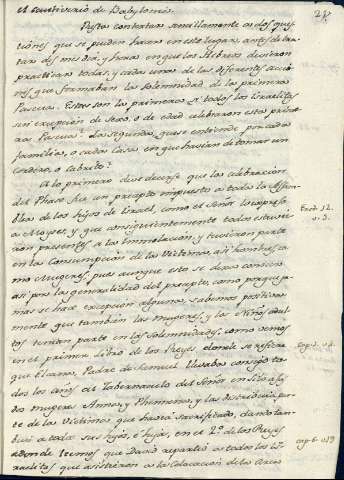 28
el cautiverio de Babylonia.
Resta contextar sencillamente a dos ques-
tiones que se pueden hacer en este lugar, antes de tra-
tar del modo, y hora en que los Hebreos devieron
practicar todas, y cada una de las diferentes accio-
nes que formaban la solemnidad de la primera
Pascua. Estas son la primera: si todos los Israelitas
sin excepcion de sexo, o de edad celebraron esta prime-
ra Pascua? La segunda, que se entiende por cada
familia, o cada Casa en que havian de tomar un
cordero, o cabrito?
A lo primero deve decirse que la celebracion
del Phase fue un precepto impuesto a toda la Asam-
blea de los hijos de Israel, como el Señor lo expreso
a Moyses, y que consiguientemente todos estuvie-
ron presentes a la Immolacion, y tuvieron parte
en la Consumpcion de las Victimas, asi hombres, co-
mo Mugeres, pues aunque esto se deva conocer
asi por la generalidad del precepto, como porque ja-
mas se hace excepcion alguna, sabemos positiva-
mente que tambien las mugeres, y los Niños adul-
tos tenian parte en las solemnidades, como vemos
en el primer Libro de los Reyes donde se refiere
que Elcana, Padre de Samuel llevaba consigo to-
dos los años al Tabernaculo del Señor en Silo a sus
dos mugeres Anna, y Phenenna, y las distribuia par-
te de las Victimas que havia sacrificado, dando tam-
bien a todos sus hijos, e hijas, en el 2º de los Reyes
adonde leemos que David repartio a todos los Is-
raelitas que asistieron a la colocacion de la Arca
Exod. 12.
v. 3.
cap. 1. v. 4.
cap. 6. v. 19